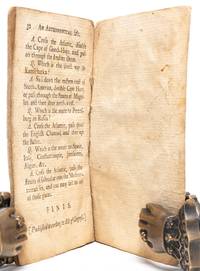 32 An ASTRONOMICAL, &c.
A. Cross the Atlantic, double
the Cape of Good-Hope, and pass
on through the Indian Ocean.
Q. Which is the usual way to
Kamschatka?
A. Sail down the eastern coast of
South-America, double Cape Horn,
or pass through the Straits of Magel-
lan and then steer north-west.
Q. Which is the route to Peters-
burg in Russia?
A. Cross the Atlantic, pass through
the English Channel, and then up
the Baltic.
Q. Which is the route to Spain,
Constantinople, Jerusalem,
Algiers, &c.
A. Cross the Atlantic, pass the
Straits of Gibraltar into the Mediter-
ranean sea, and you may sail to all
of those places.
FINIS.
[Published according to Act of Congress.]